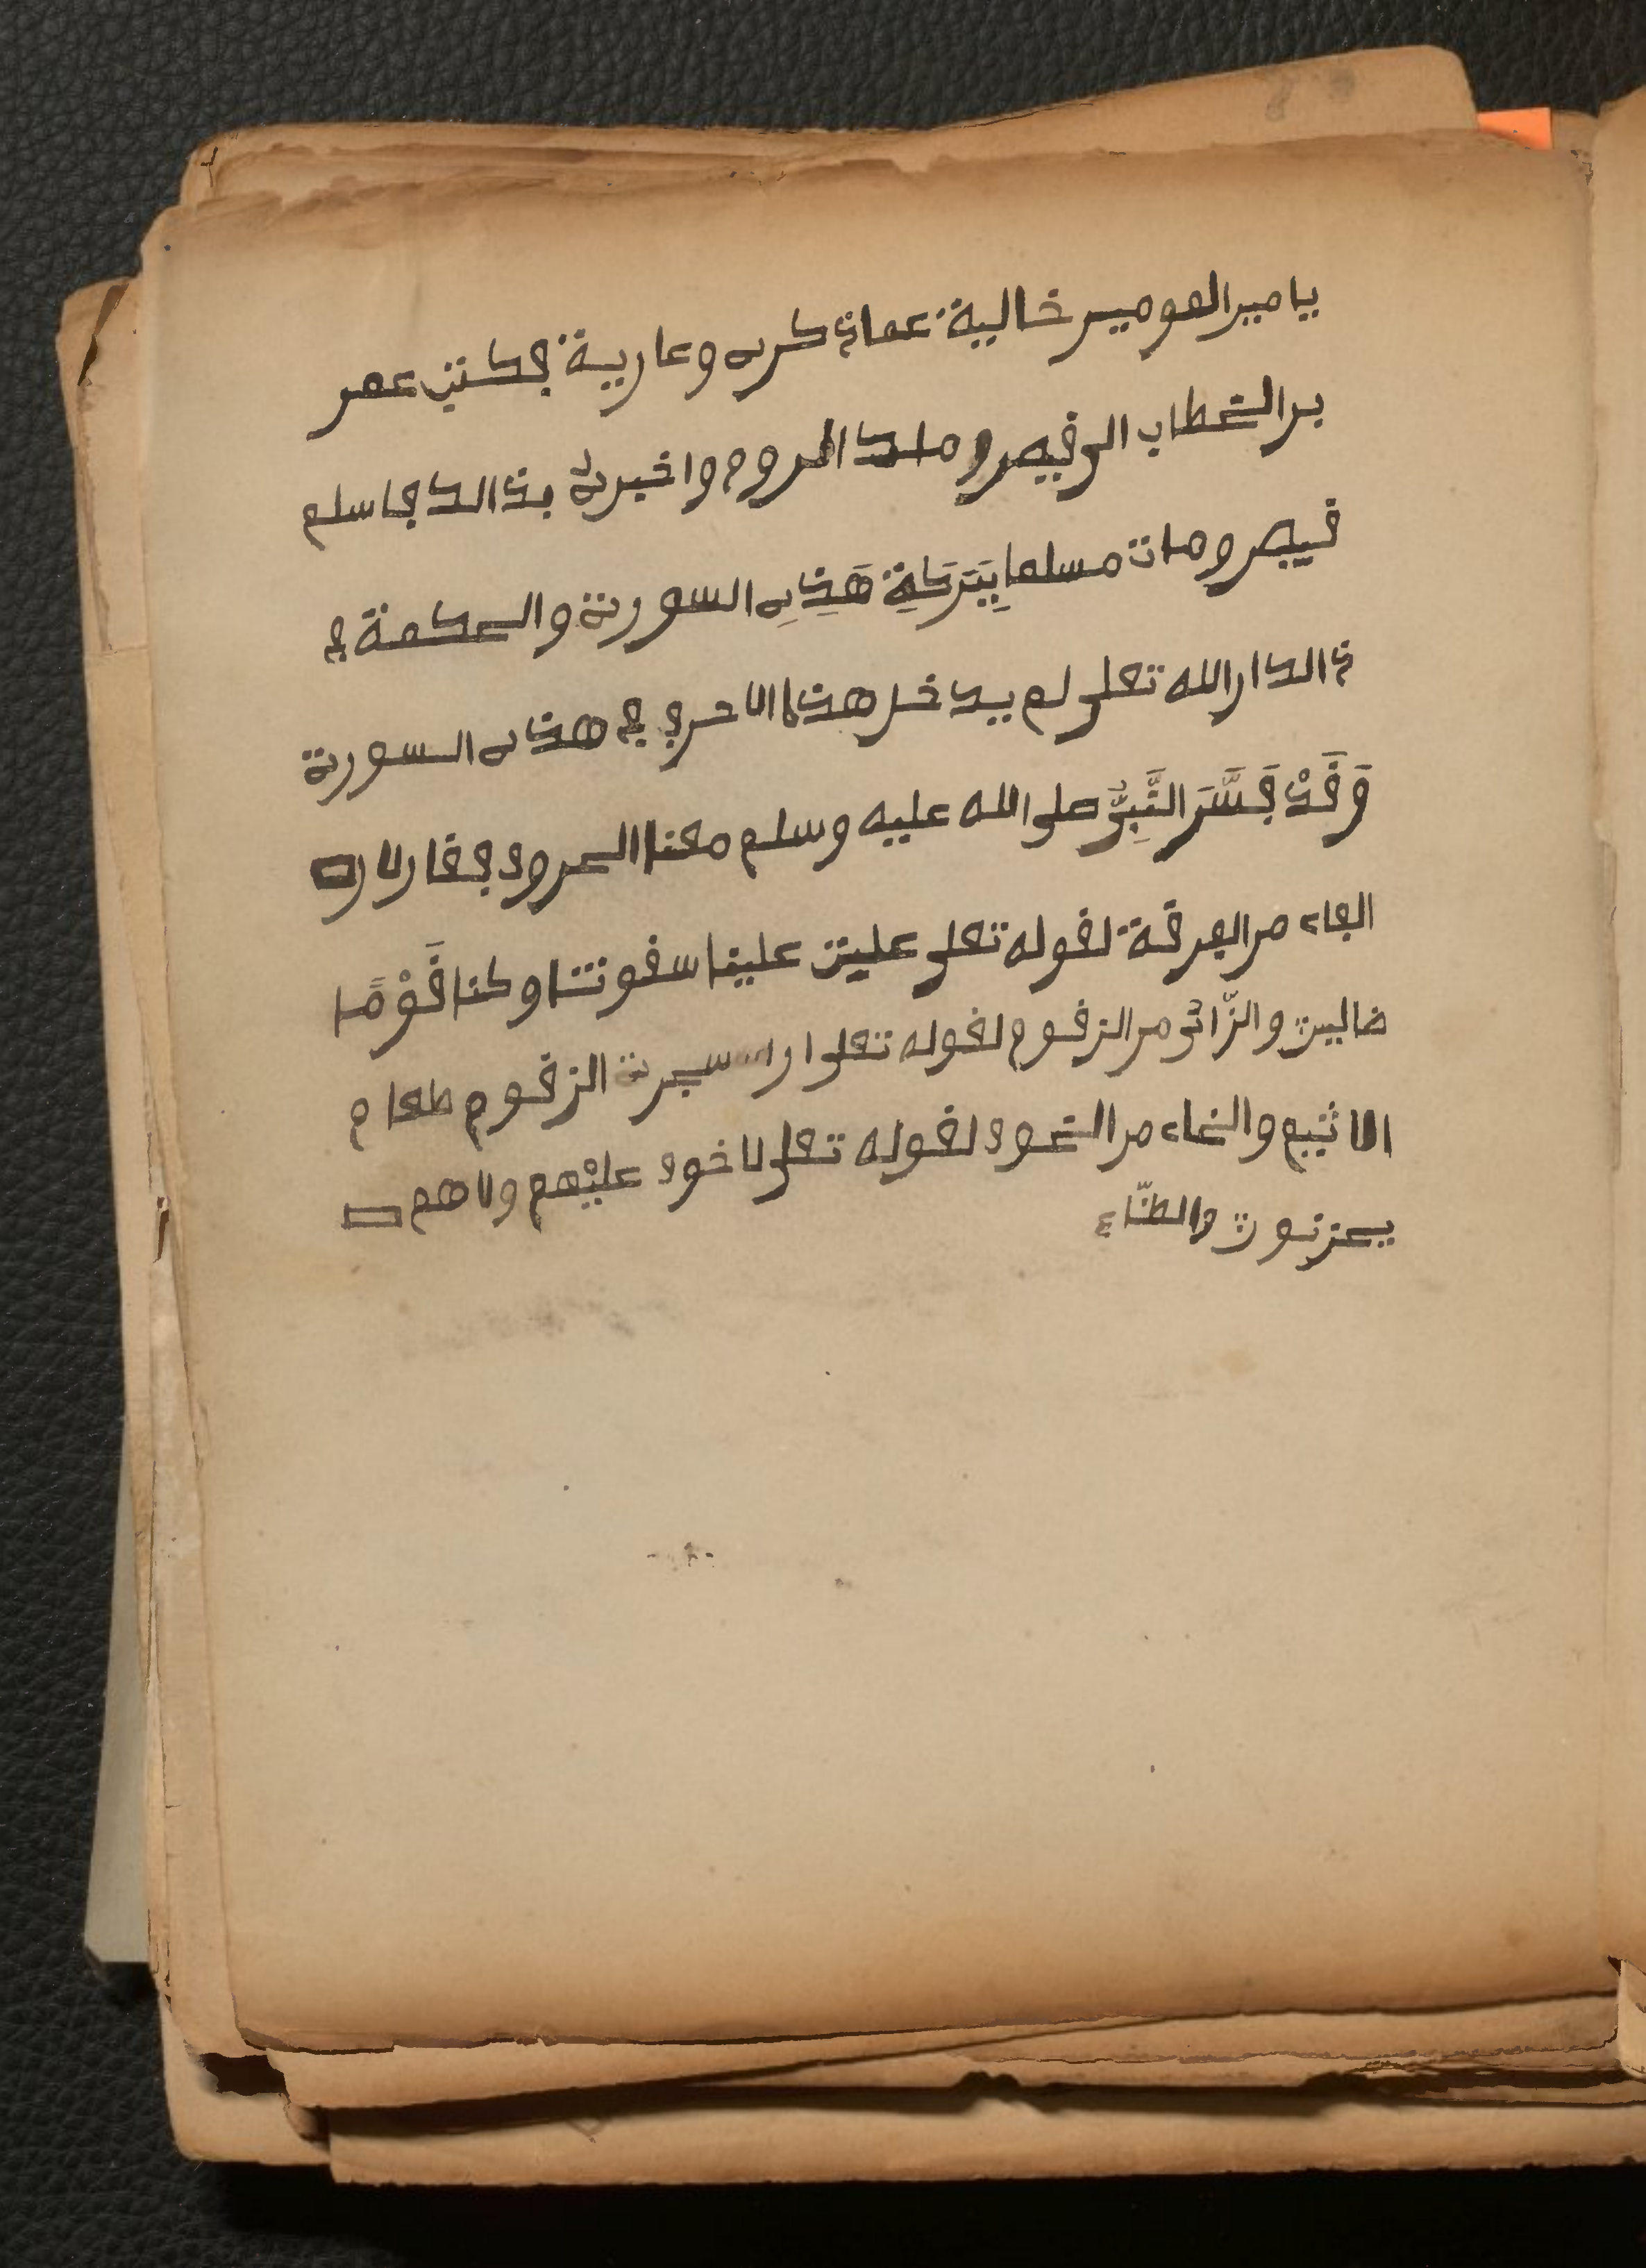 يا مير المومير خالية عماذكره وعارية فكتب عمر
بر الخطاب الى فيصر وملك الروم واخبره بذالك فاسلم
فيصر ومات مسلما بِبَرَكَةِ هَذِهِ السورة والحكمة في
ذالك ار الله تعلى لم يدخل هذه الاحرف في هذه السورة
وَقَدْ فَسَّرَ النَّبِيُّ صلى الله عليه وسلم معنا الحروف فقار لار
الفاء مر الفرقة لقوله تعلى علينا سقوتنا وكنا قَوْمًا
ضالين والزّائ مر الزقوم لقوله تعلى ار سجرة الزقوم طعام
الاثيم والخاء مر الخوف لقوله تعلى لا خوف عليْهم ولا هم
يحزنون والظّاء